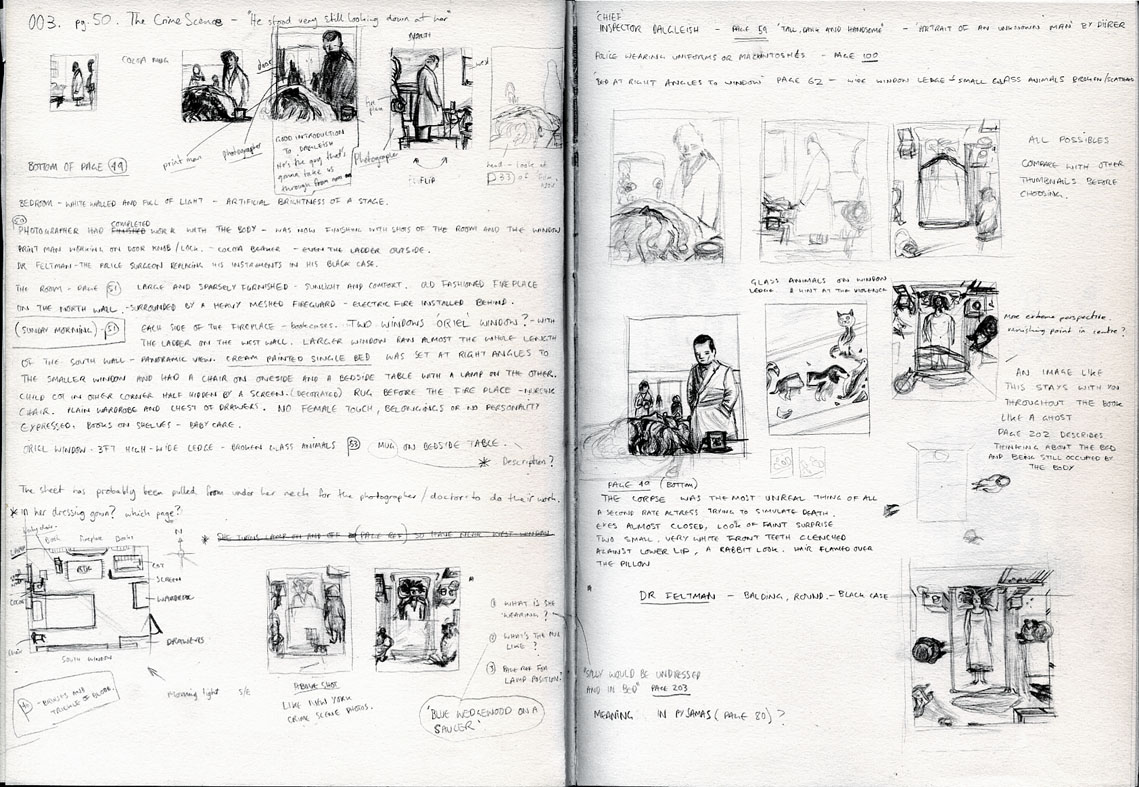 003. pg. 50. The Crime Scene - "He stood very still looking down at her"
COCOA MUG
door
NORTH
bed
fire place
print man
photographer
GOOD INTRODUCTION
TO DALGLEISH
He's the guy that's
gonna take us
through from now on
Photographer
FLIP
head - look at
233 of
BOTTOM OF PAGE 49
BEDROOM - WHITE WALLED AND FULL OF LIGHT - ARTIFICIAL BRIGHTNESS OF A STAGE.
50
PHOTOGRAPHER HAD FINISHED COMPLETED WORK WITH THE BODY - WAS NOW FINISHING WITH SHOTS OF THE ROOM AND THE WINDOW
PRINT MAN WORKING ON DOOR KNOB/LOCK. - COCOA BEAKER - EVEN THE LADDER OUTSIDE.
DR FELTMAN - THE POLICE SURGEON REPLACING HIS INSTRUMENTS IN HIS BLACK CASE.
THE ROOM - PAGE 51 LARGE AND SPARSELY FURNISHED - SUNLIGHT AND COMFORT. OLD FASHIONED FIREPLACE
ON THE NORTH WALL - SURROUNDED BY A HEAVY MESHED FIREGUARD - ELECTRIC FIRE INSTALLED BEHIND.
(SUNDAY MORNING) - 51 EACH SIDE OF THE FIREPLACE - bookcases. TWO WINDOWS 'ORIEL' WINDOW? - WITH
THE LADDER ON THE WEST WALL. LARGER WINDOW RAN ALMOST THE WHOLE LENGTH
OF THE SOUTH WALL - PANORAMIC VIEW. CREAM PAINTED SINGLE BED WAS SET AT RIGHT ANGLES TO
THE SMALLER WINDOW AND HAD A CHAIR ON ONE SIDE AND A BEDSIDE TABLE WITH A LAMP ON THE OTHER.
CHILD COT IN OTHER CORNER HALF HIDDEN BY A SCREEN. RUG BEFORE THE FIRE PLACE - NURSING
CHAIR. PLAIN WARDROBE AND CHEST OF DRAWERS. NO FEMALE TOUCH, BELONGINGS OR NO PERSONALITY
EXPRESSED. BOOKS ON SHELVES - BABY CARE.
ORIEL WINDOW - 3FT HIGH - WIDE LEDGE - BROKEN GLASS ANIMALS 53 MUG ON BEDSIDE TABLE.
* Description?
The sheet has probably been pulled from under her neck for the photographer/doctor to do their work.
* in her dressing gown? which page?
* SHE TURNS LAMP ON AND OFF
Book
Fireplace
Books
N
LAMP
RUG
COT
SCREEN
WARDROBE
DRAWERS
Chair
SOUTH WINDOW
Morning light S/E
- BRUISES AND
TRICKLE OF BLOOD.
ABOVE SHOT
LIKE NEW YORK
CRIME SCENE PHOTOS.
1 WHAT IS SHE
WEARING?
2 WHAT'S THE MUG
LIKE?
3 PAGE REF FOR
LAMP POSITION.
'BLUE WEDGEWOOD ON A
SAUCER'
'CHIEF'
INSPECTOR DALGLEISH - PAGE 59 'TALL, DARK AND HANDSOME' - 'PORTRAIT OF AN UNKNOWN MAN' BY DÜRER
POLICE WEARING UNIFORMS OR MACKINTOSHES - PAGE 100
'BED AT RIGHT ANGLES TO WINDOW' PAGE 62 - WIDE WINDOW LEDGE + SMALL GLASS ANIMALS BROKEN/SCATTERED
ALL POSSIBLES
COMPARE WITH OTHER
THUMBNAILS BEFORE
CHOOSING.
GLASS ANIMALS ON WINDOW
LEDGE. A HINT AT THE VIOLENCE
More extreme perspective.
Vanishing point in centre?
AN IMAGE LIKE
THIS STAYS WITH YOU
THROUGHOUT THE BOOK
LIKE A GHOST
PAGE 202 DESCRIBES
THINKING ABOUT THE BED
AND BEING STILL OCCUPIED BY
THE BODY
PAGE 49 (BOTTOM)
THE CORPSE WAS THE MOST UNREAL THING OF ALL
A SECOND RATE ACTRESS TRYING TO SIMULATE DEATH.
EYES ALMOST CLOSED, LOOK OF FAINT SURPRISE
TWO SMALL, VERY WHITE FRONT TEETH CLENCHED
AGAINST LOWER LIP, A RABBIT LOOK. HAIR FLAMED OVER
THE PILLOW
DR FELTMAN - BALDING, ROUND. - BLACK CASE
"SALLY WOULD BE UNDRESSED
AND IN BED" PAGE 203
MEANING IN PYJAMAS (PAGE 80)?